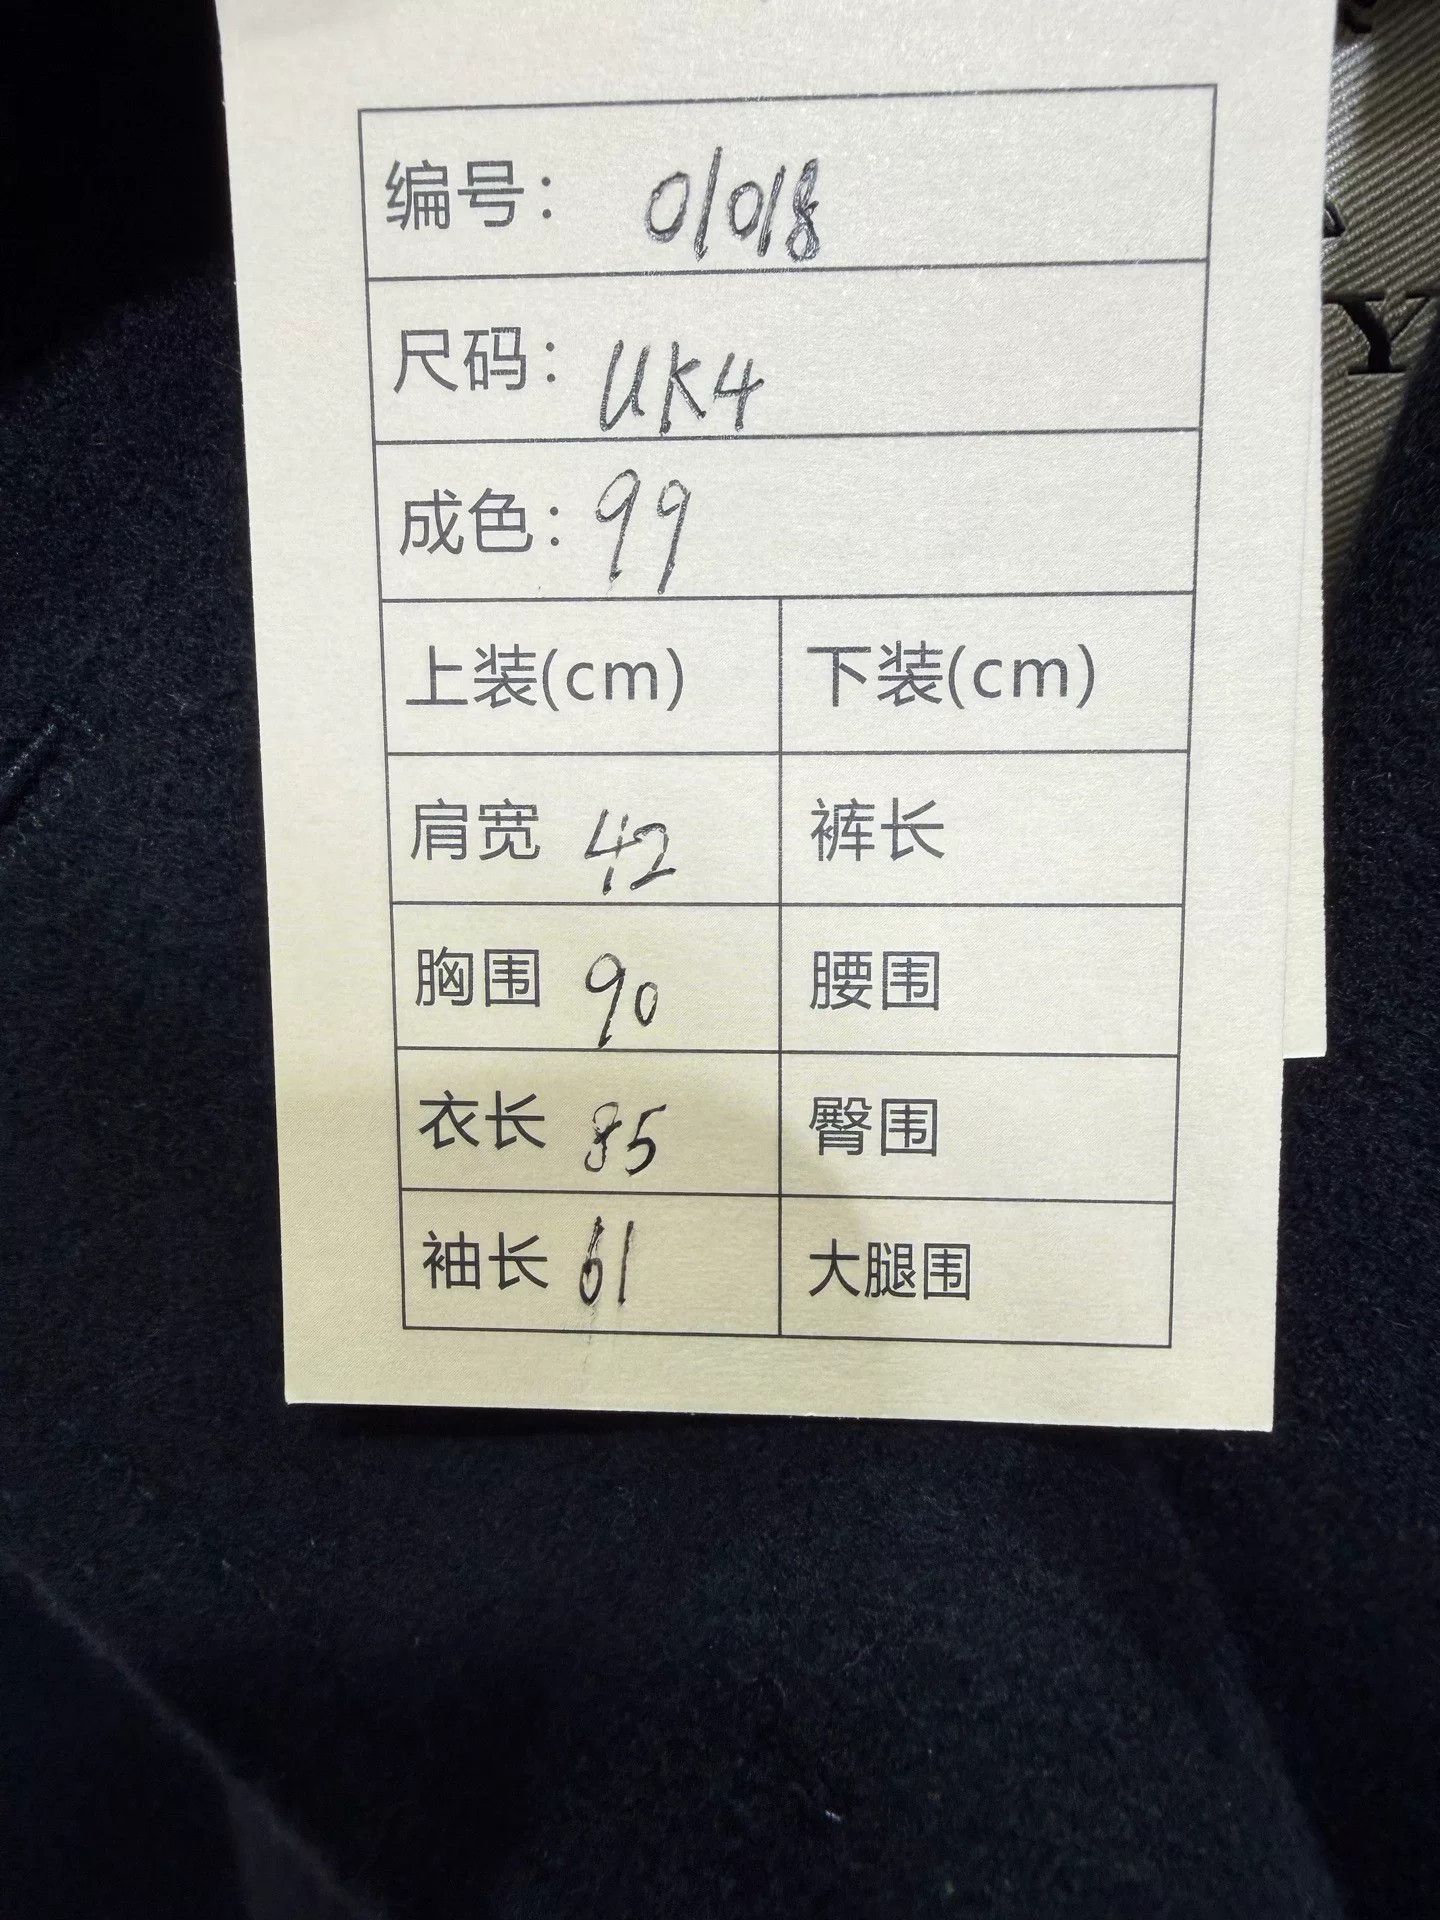 编号: 01018
尺码: UK4
成色: 99
上装(cm) 下装(cm)
肩宽 42 裤长
胸围 90 腰围
衣长 85 臀围
袖长 61 大腿围
Y